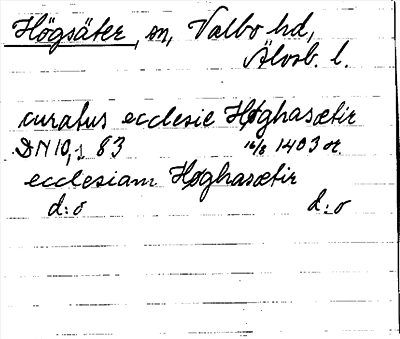 Högsäter, sn, Valbo hd,
Älvsb. l.
curatus ecclesie Høghasætir
DN 10, s 83 16/8 1403 or.
ecclesiam Høghasætir
d:o d:o